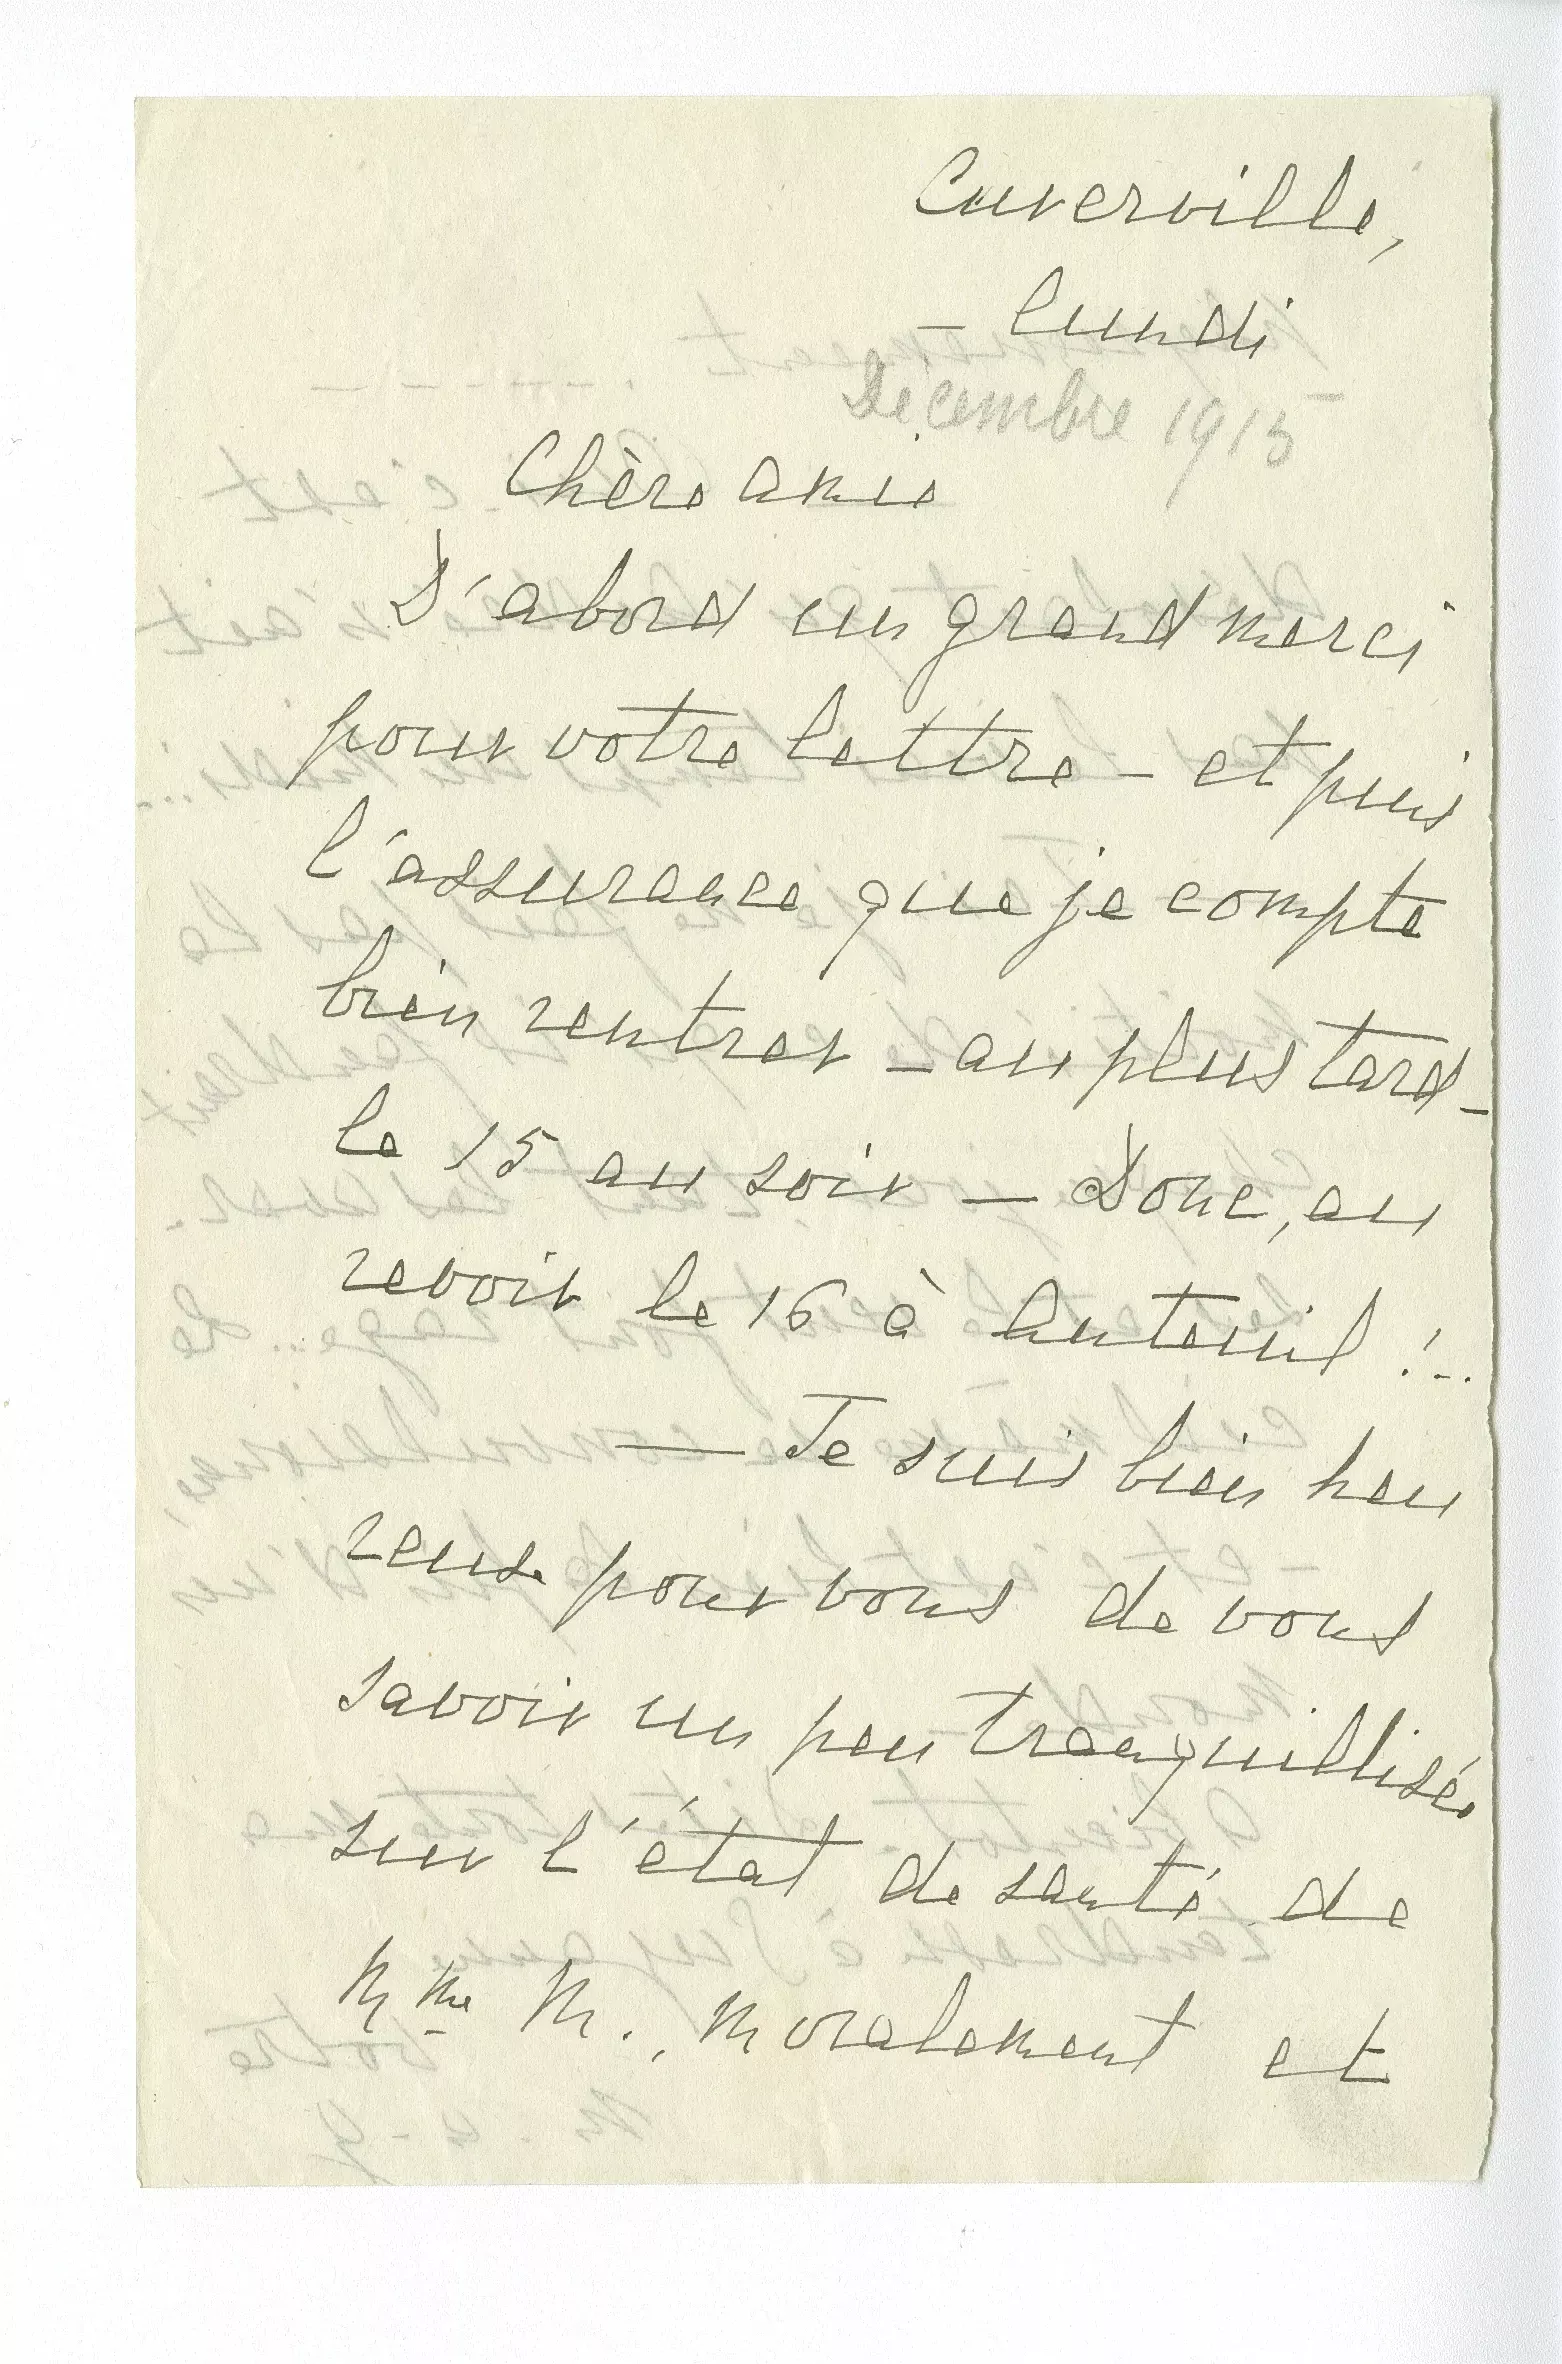 Cuverville,
– lundi
Décembre 1915
Chère amie
D'abord un grand merci
pour votre lettre – et puis
l'assurance que je compte
bien rentrer – au plus tard –
le 15 au soir – Donc, au
revoir le 16 à Auteuil !..
— Je suis bien heu
reuse pour vous de vous
savoir un peu tranquillisée
sur l'état de santé de
Mme M., moralement et